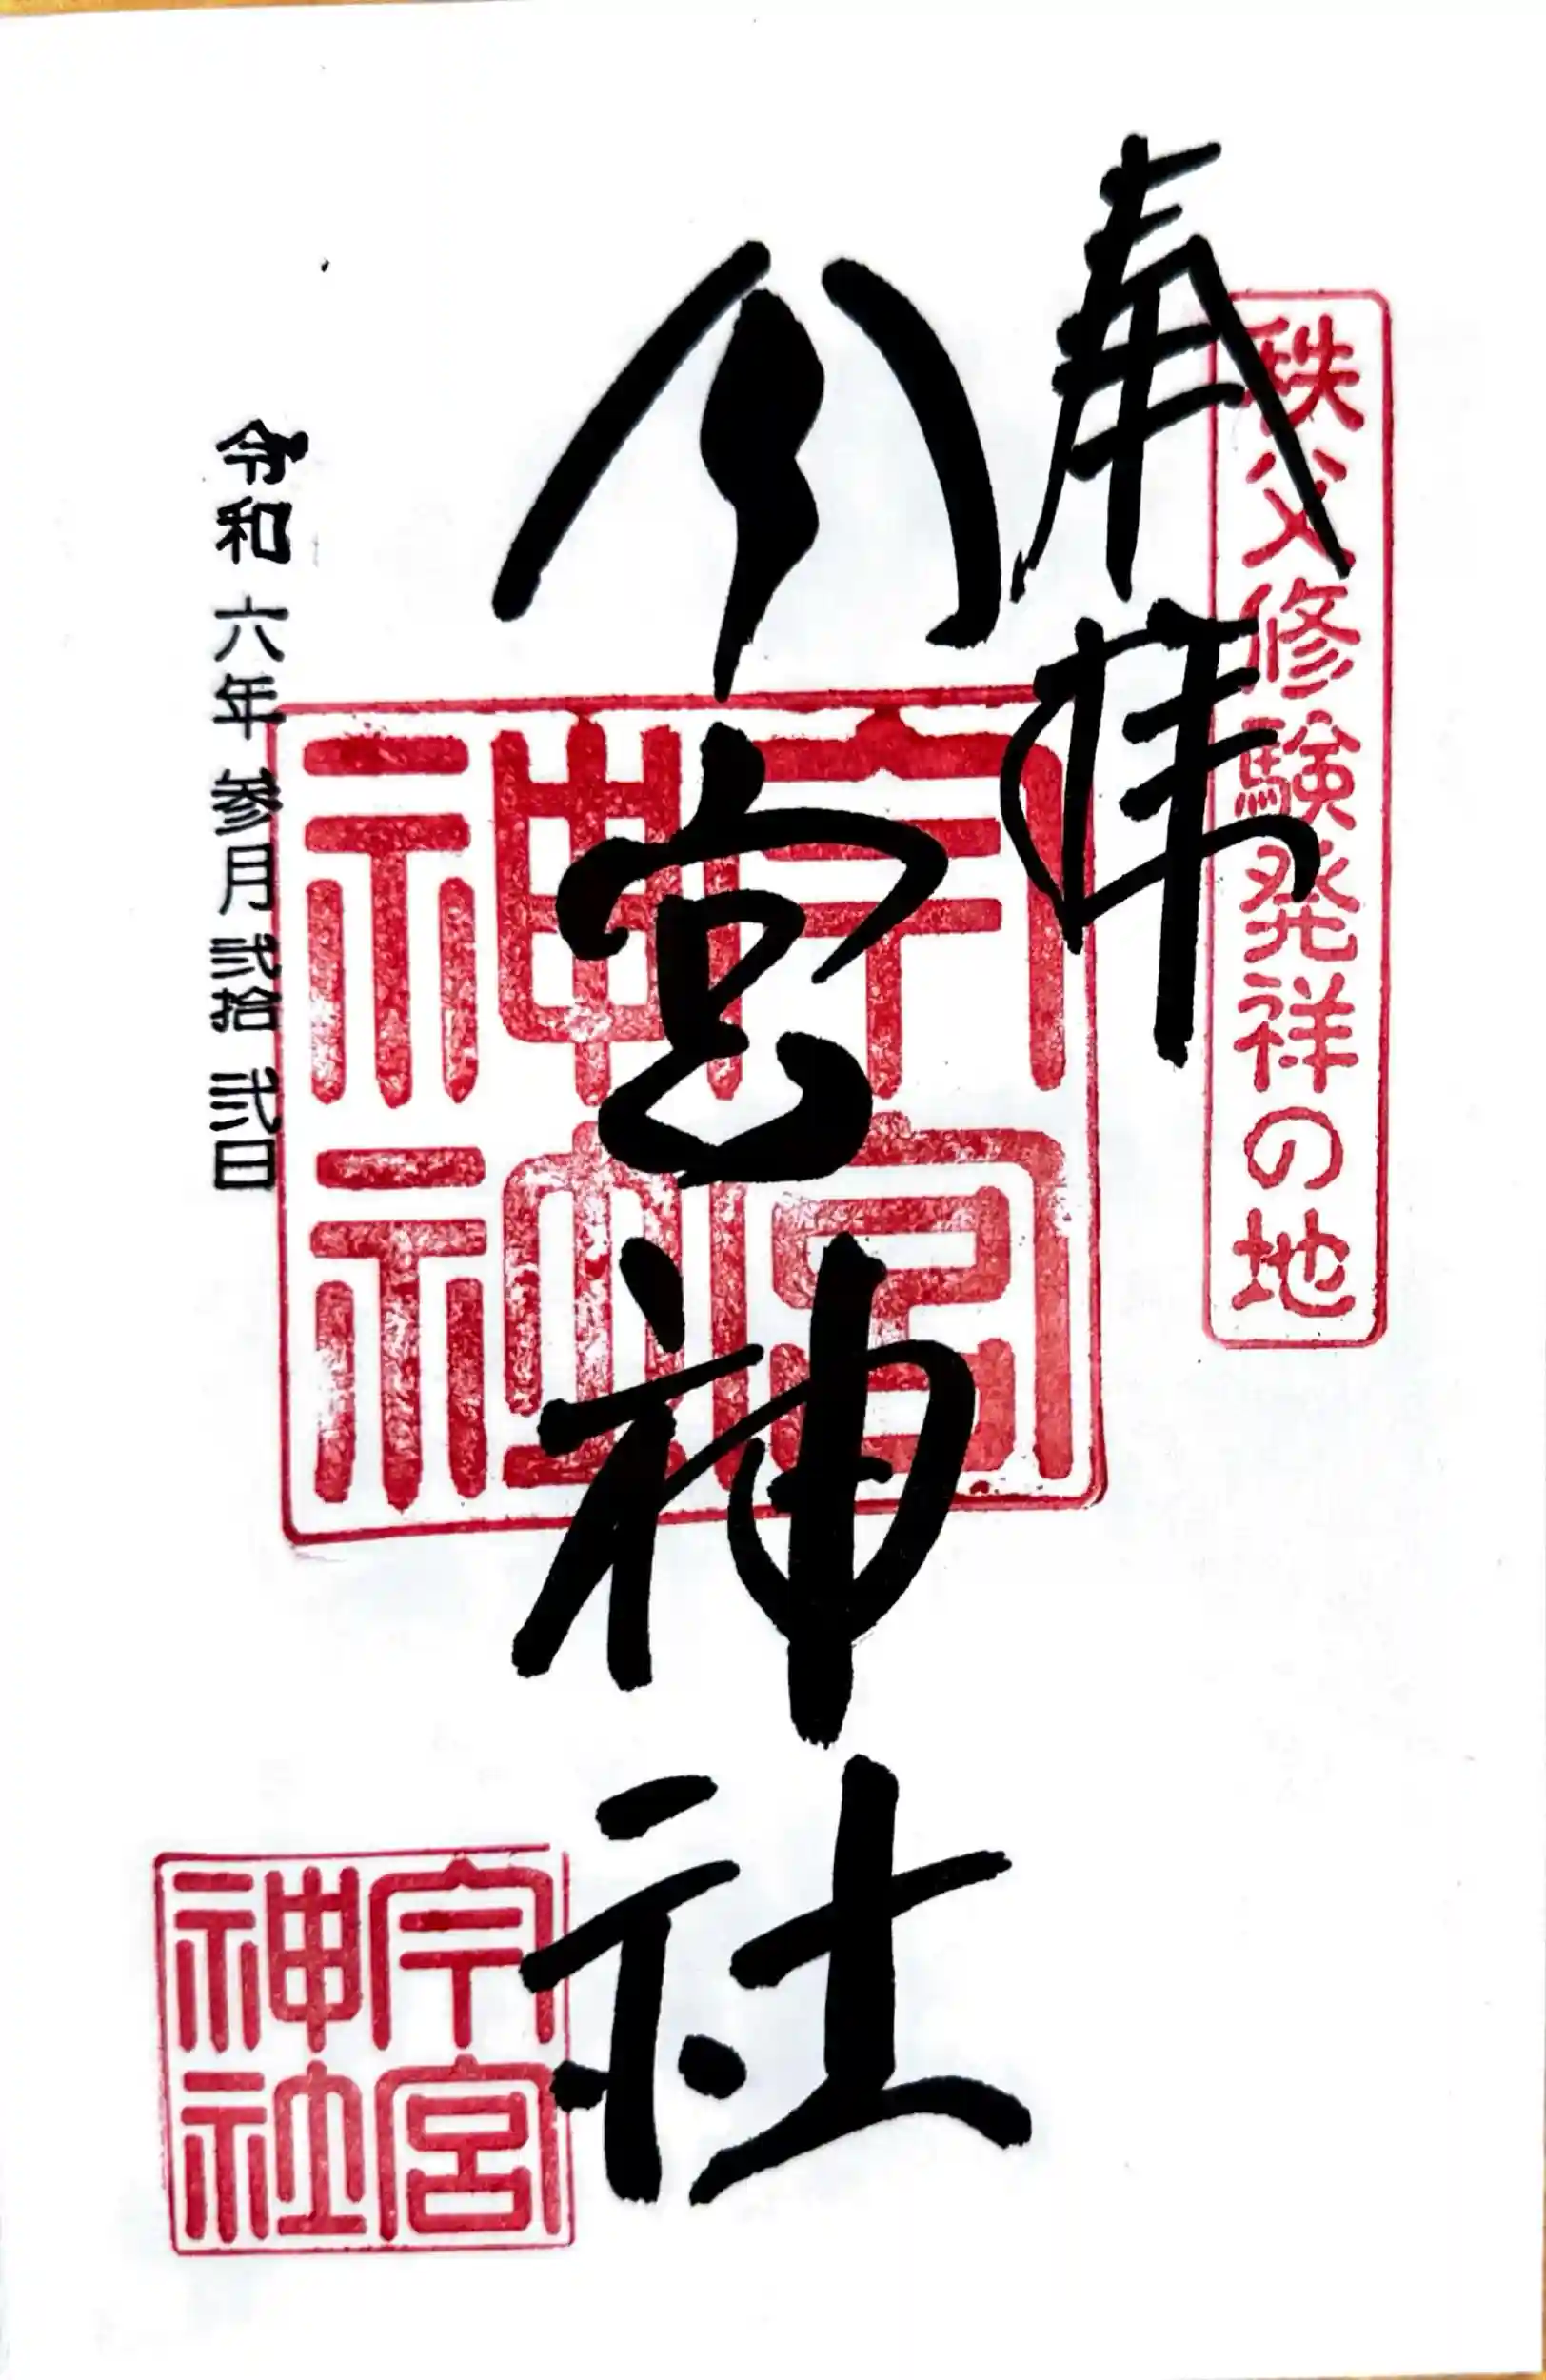 秩父修験発祥の地
奉拝
今宮神社
今宮
神社
令和六年参月弐拾弐日
今宮
神社